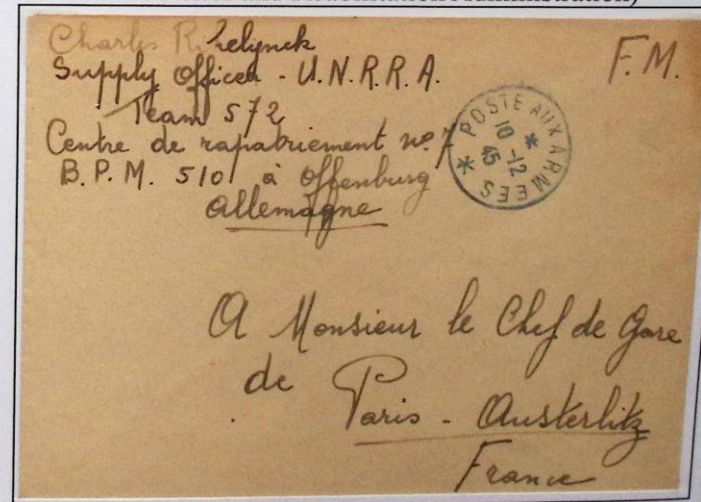 and Rehabilitation Administration)
Charles
Supply Officer - U.N.R.R.A.
Team 572
Centre de rapatriement no 7
B.P.M. 510 à Offenburg
Allemagne
F.M.
POSTE AUX ARMEES
10-12
45
A Monsieur le Chef de Gare
de
Paris - Austerlitz
France